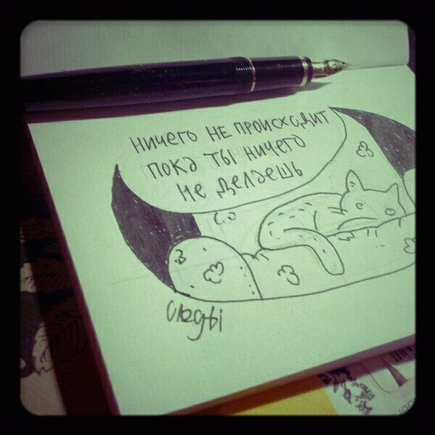 ничего не происходит
пока ты ничего
не делаешь